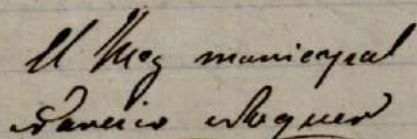 El Juez municipal
Narciso Noguer